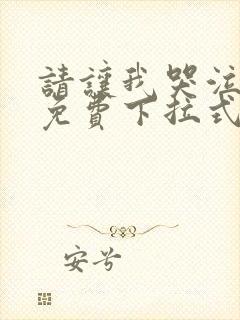 請讓我哭泣
免費下拉式
安兮